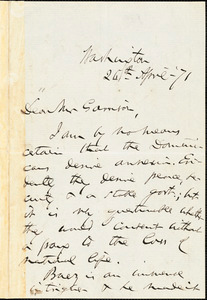 Washington
26th April - 71
Dear Mr Garrison,
I am by no means
certain that the Domini-
cans desire annexn. Evi-
dently they desire peace, se-
curity, & a stable govt; but
it is very questionable whether
they would consent without
a pang to the loss of
national life.
Baez is an
intriguer & he